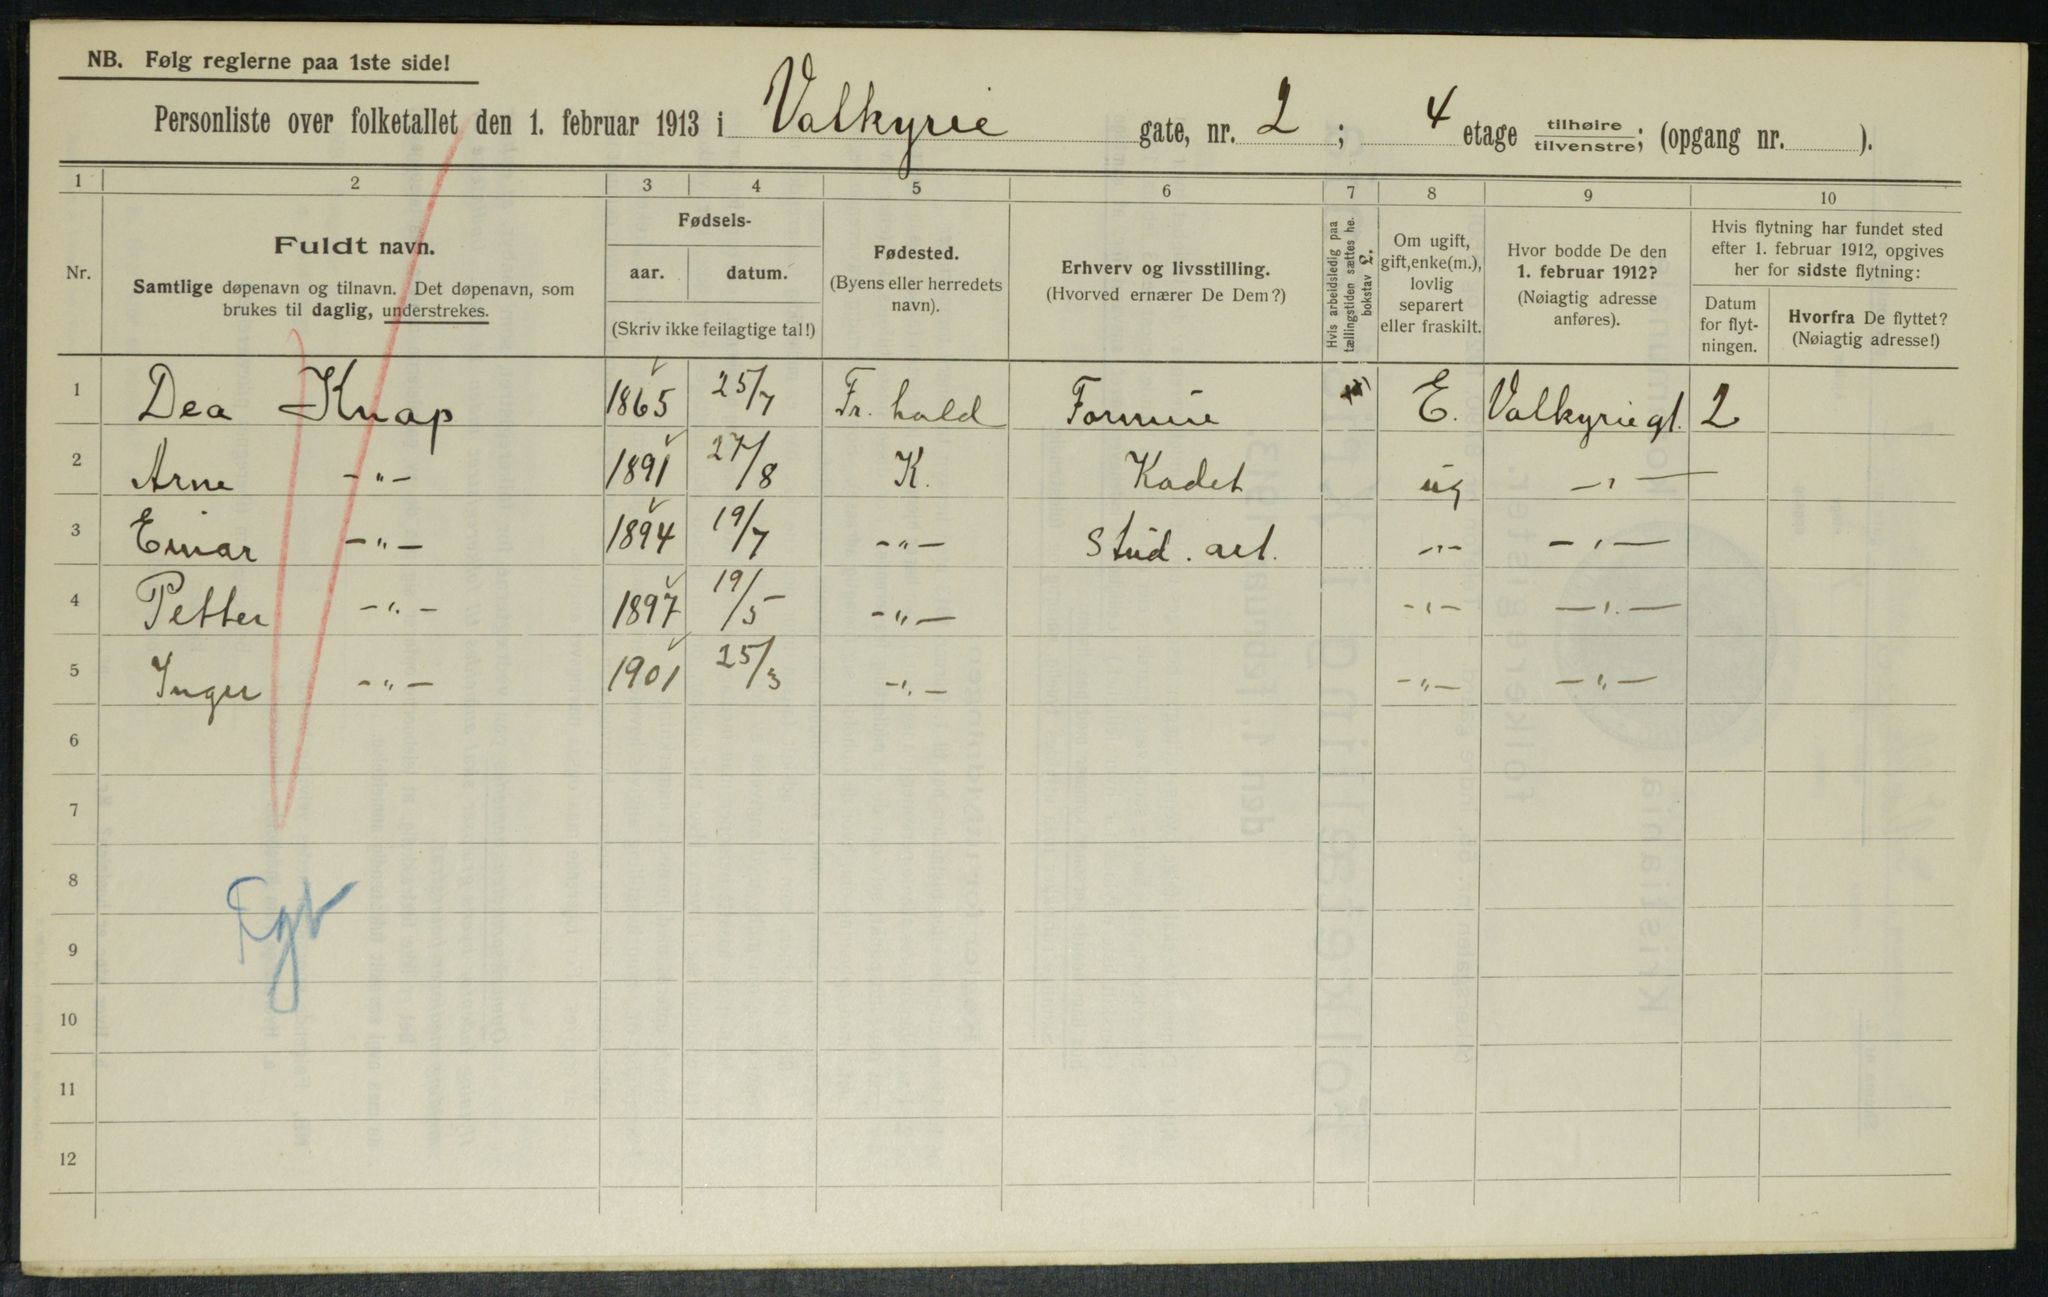 NB. Følg reglerne paa 1ste side!
Personliste over folketallet den 1. februar 1913 i Valkyrie gate, nr. 2 ; 4 etage tilhøire / tilvenstre; (opgang nr. ).
1 2 3 4 5 6 7 8 9 10
Nr.
Fuldt navn.
Samtlige døpenavn og tilnavn. Det døpenavn, som
brukes til daglig, understrekes.
Fødsels-
aar. datum.
(Skriv ikke feilagtige tal!)
Fødested.
(Byens eller herredets
navn).
Erhverv og livsstilling.
(Hvorved ernærer De Dem?)
Hvis arbeidsledig paa
tællingstiden sættes he.
bokstav l.
Om ugift,
gift, enke(m.),
lovlig
separert
eller fraskilt.
Hvor bodde De den
1. februar 1912?
(Nøiagtig adresse
anføres).
Hvis flytning har fundet sted
efter 1. februar 1912, opgives
her for sidste flytning:
Datum
for flyt-
ningen.
Hvorfra De flyttet?
(Nøiagtig adresse!)
1 Dea Knap 1865 25/7 Fr. hald Formue E. Valkyriegt. 2
2 Arne -"- 1891 27/8 K. Kadet ug -"-
3 Einar -"- 1894 19/7 -"- Stud. art. -"- -"-
4 Petter -"- 1897 19/5 -"- -"- -"-
5 Inger -"- 1901 25/3 -"- -"- -"-
6
7
8
9
10
11
12